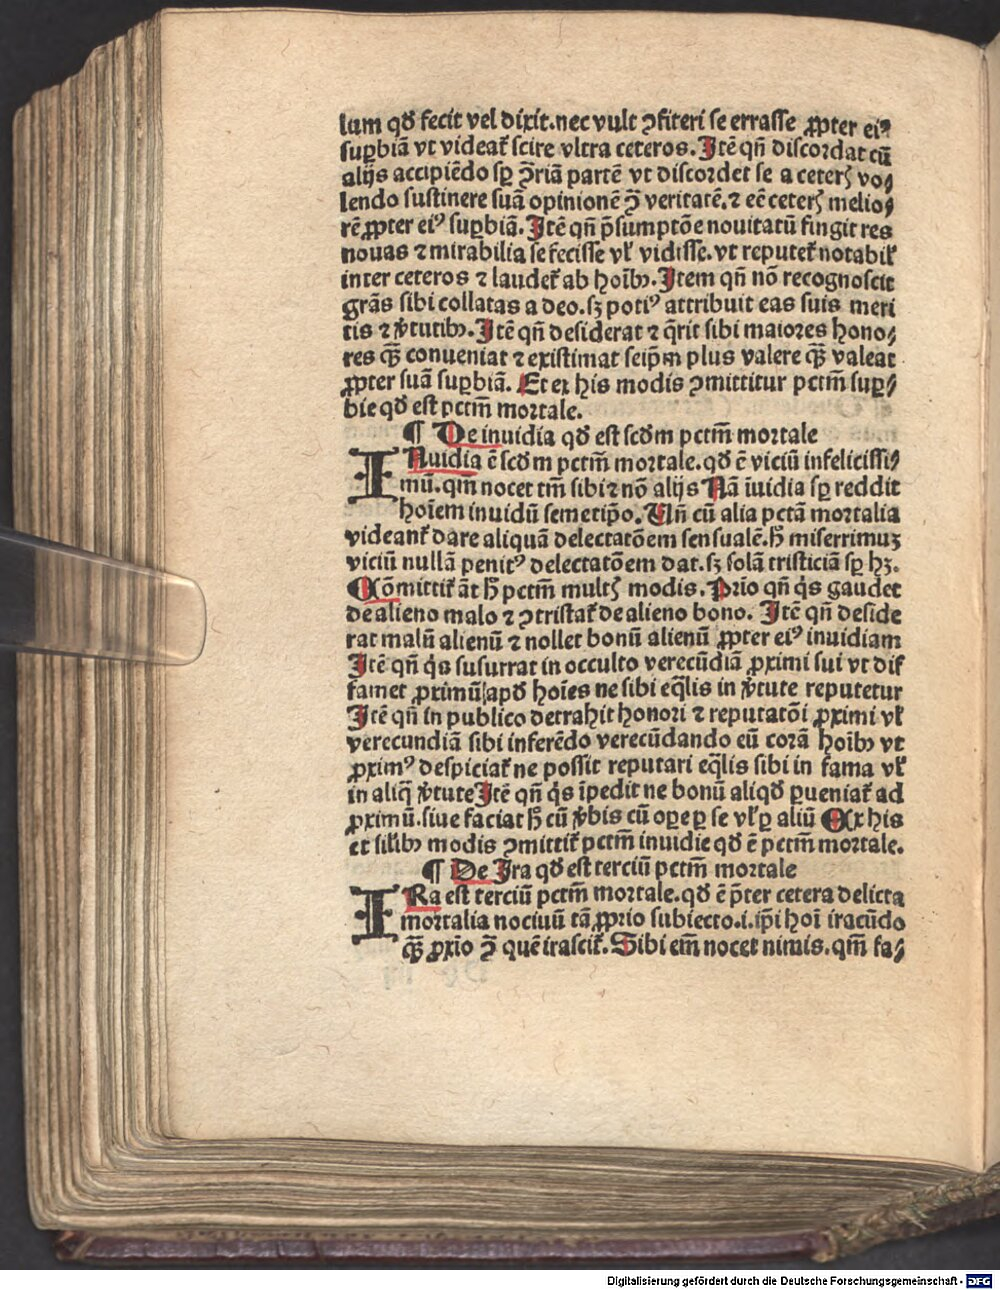 lum qď fecit vel dixit.nec vult ꝯfiteri se errasse ꝓpter eiꝰ
suꝑbiā vt videat᷑ scire vltra ceteros. Itē qn̄ discordat cū
alijs accipiēdo sꝑ ꝯ̄riā partē vt discordet se a ceterꝭ vo⸗
lendo sustinere suā opinionē ꝯ̄ veritatē.⁊ eē ceterꝭ melio⸗
rē ꝓpter eiꝰ suꝑbiā. Itē qn̄ p̄sumptōe nouitatū fingit res
nouas ⁊ mirabilia se fecisse vł vidisse.vt reputet᷑ notabił
inter ceteros ⁊ laudet᷑ ab hoı̄bꝫ. Item qn̄ nō recognoscit
grās sibi collatas a deo.sꝫ potiꝰ attribuit eas suis meri
tis ⁊ v̓tutibꝫ. Itē qn̄ desiderat ⁊ q̄rit sibi maiores hono⸗
res q̄ꝫ conueniat ⁊ existimat seip̄m plus valere q̄ꝫ valeat
ꝓpter suā suꝑbiā. Et ex his modis ꝯmittitur pctm̄ suꝑ⸗
bie qď est pctm̄ mortale.
¶ De inuidia qď est scďm pctm̄ mortale
INuidia ē scďm pctm̄ mortale.qď ē viciū infelicissi⸗
mū.qm̄ nocet tm̄ sibi ⁊ nō alijs Nā īuidia sꝑ reddit
hoı̄em inuidū semetip̄o. Vn̄ cū alia pctā mortalia
videant᷑ dare aliquā delectatōem sensualē.h̄ miserrimuꝫ
viciū nullā penitꝰ delectatōem dat.sꝫ solā tristiciā sꝑ hꝫ.
Cōmittit᷑ āt h̄ pctm̄ multꝭ modis. Prıo qn̄ q̇s gaudet
de alieno malo ⁊ ꝯtristat᷑ de alieno bono. Itē qn̄ deside
rat malū alienū ⁊ nollet bonū alienū ꝓpter eiꝰ inuidiam
Itē qn̄ q̇s susurrat in occulto verecūdiā ꝓximi sui vt dif
famet ꝓximū apď hoı̄es ne sibi eq̄lis in v̓tute reputetur
Itē qn̄ in publico detrahit honori ⁊ reputatōi ꝓximi vł
verecundiā sibi inferēdo verecūdando eū corā hoı̄bꝫ vt
ꝓximꝰ despiciat᷑ ne possit reputari eq̄lis sibi in fama vł
in aliq̄ v̓tute Itē qn̄ q̇s īpedit ne bonū aliqď ꝑueniat᷑ ad
ꝓximū.siue faciat h̄ cū v̓bis cū oꝑe ꝑ se vł ꝑ aliū Ex his
et silibꝫ modis ꝯmittit᷑ pctm̄ inuidie qď ē pctm̄ mortale.
¶ De Ira qď est terciū pctm̄ mortale
IRa est terciū pctm̄ mortale.qď ē p̄ter cetera delicta
mortalia nociuū tā ꝓprio subiecto.i.ip̄i hoı̄ iracūdo
q̄ꝫ ꝓxıo ꝯ̄ quē irascit᷑. Sibi em̄ nocet nimis.qm̄ fa⸗
Digitalisierung gefördert durch die Deutsche Forschungsgemeinschaft - DFG